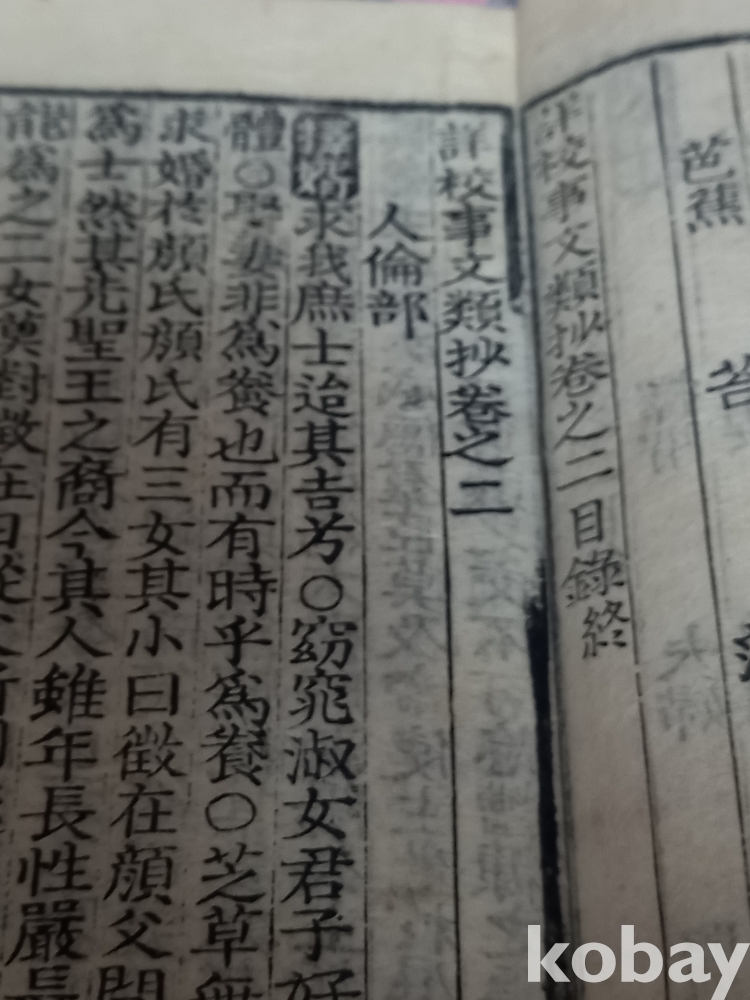 芭蕉 苔
詳校事文類抄卷之二目錄終
詳校事文類抄卷之二
人倫部
求我庶士迨其吉兮○窈窕淑女君子好
體○娶妻非爲養也而有時乎爲養○芝草無
求婚於顔氏顔氏有三女其小曰徵在顔父問
爲士然其先聖王之裔今其人雖年長性嚴
龍爲之二女莫對徵在曰從父所
kobay